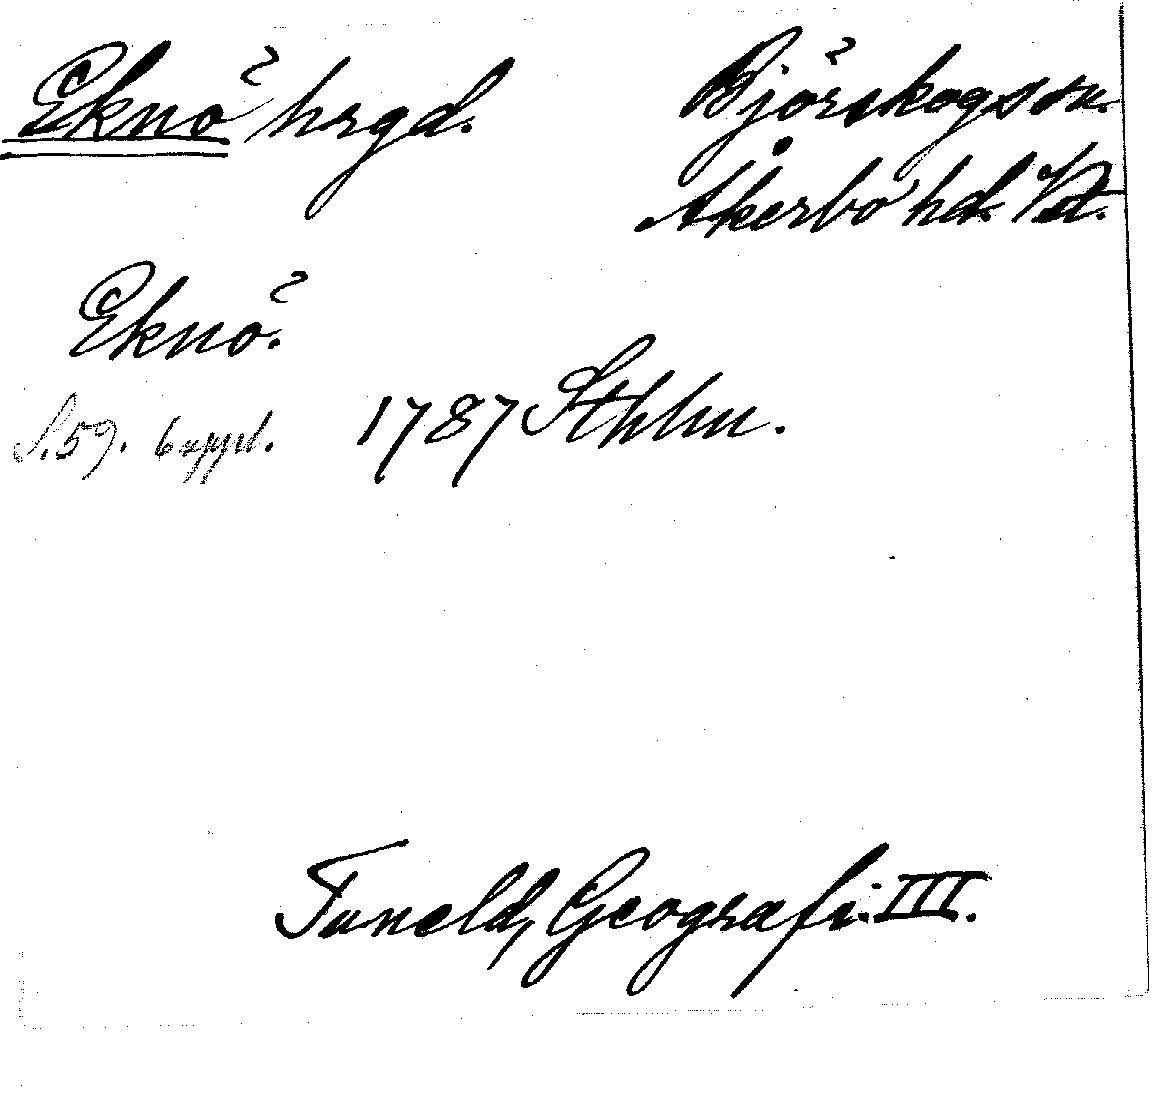 Eknö hrgd. Björskogs sn.
Åkerbo hd. Vstm.
Eknö.
S. 59. 6 uppl. 1787 Sthlm.
Tuneld, Geografi. III.